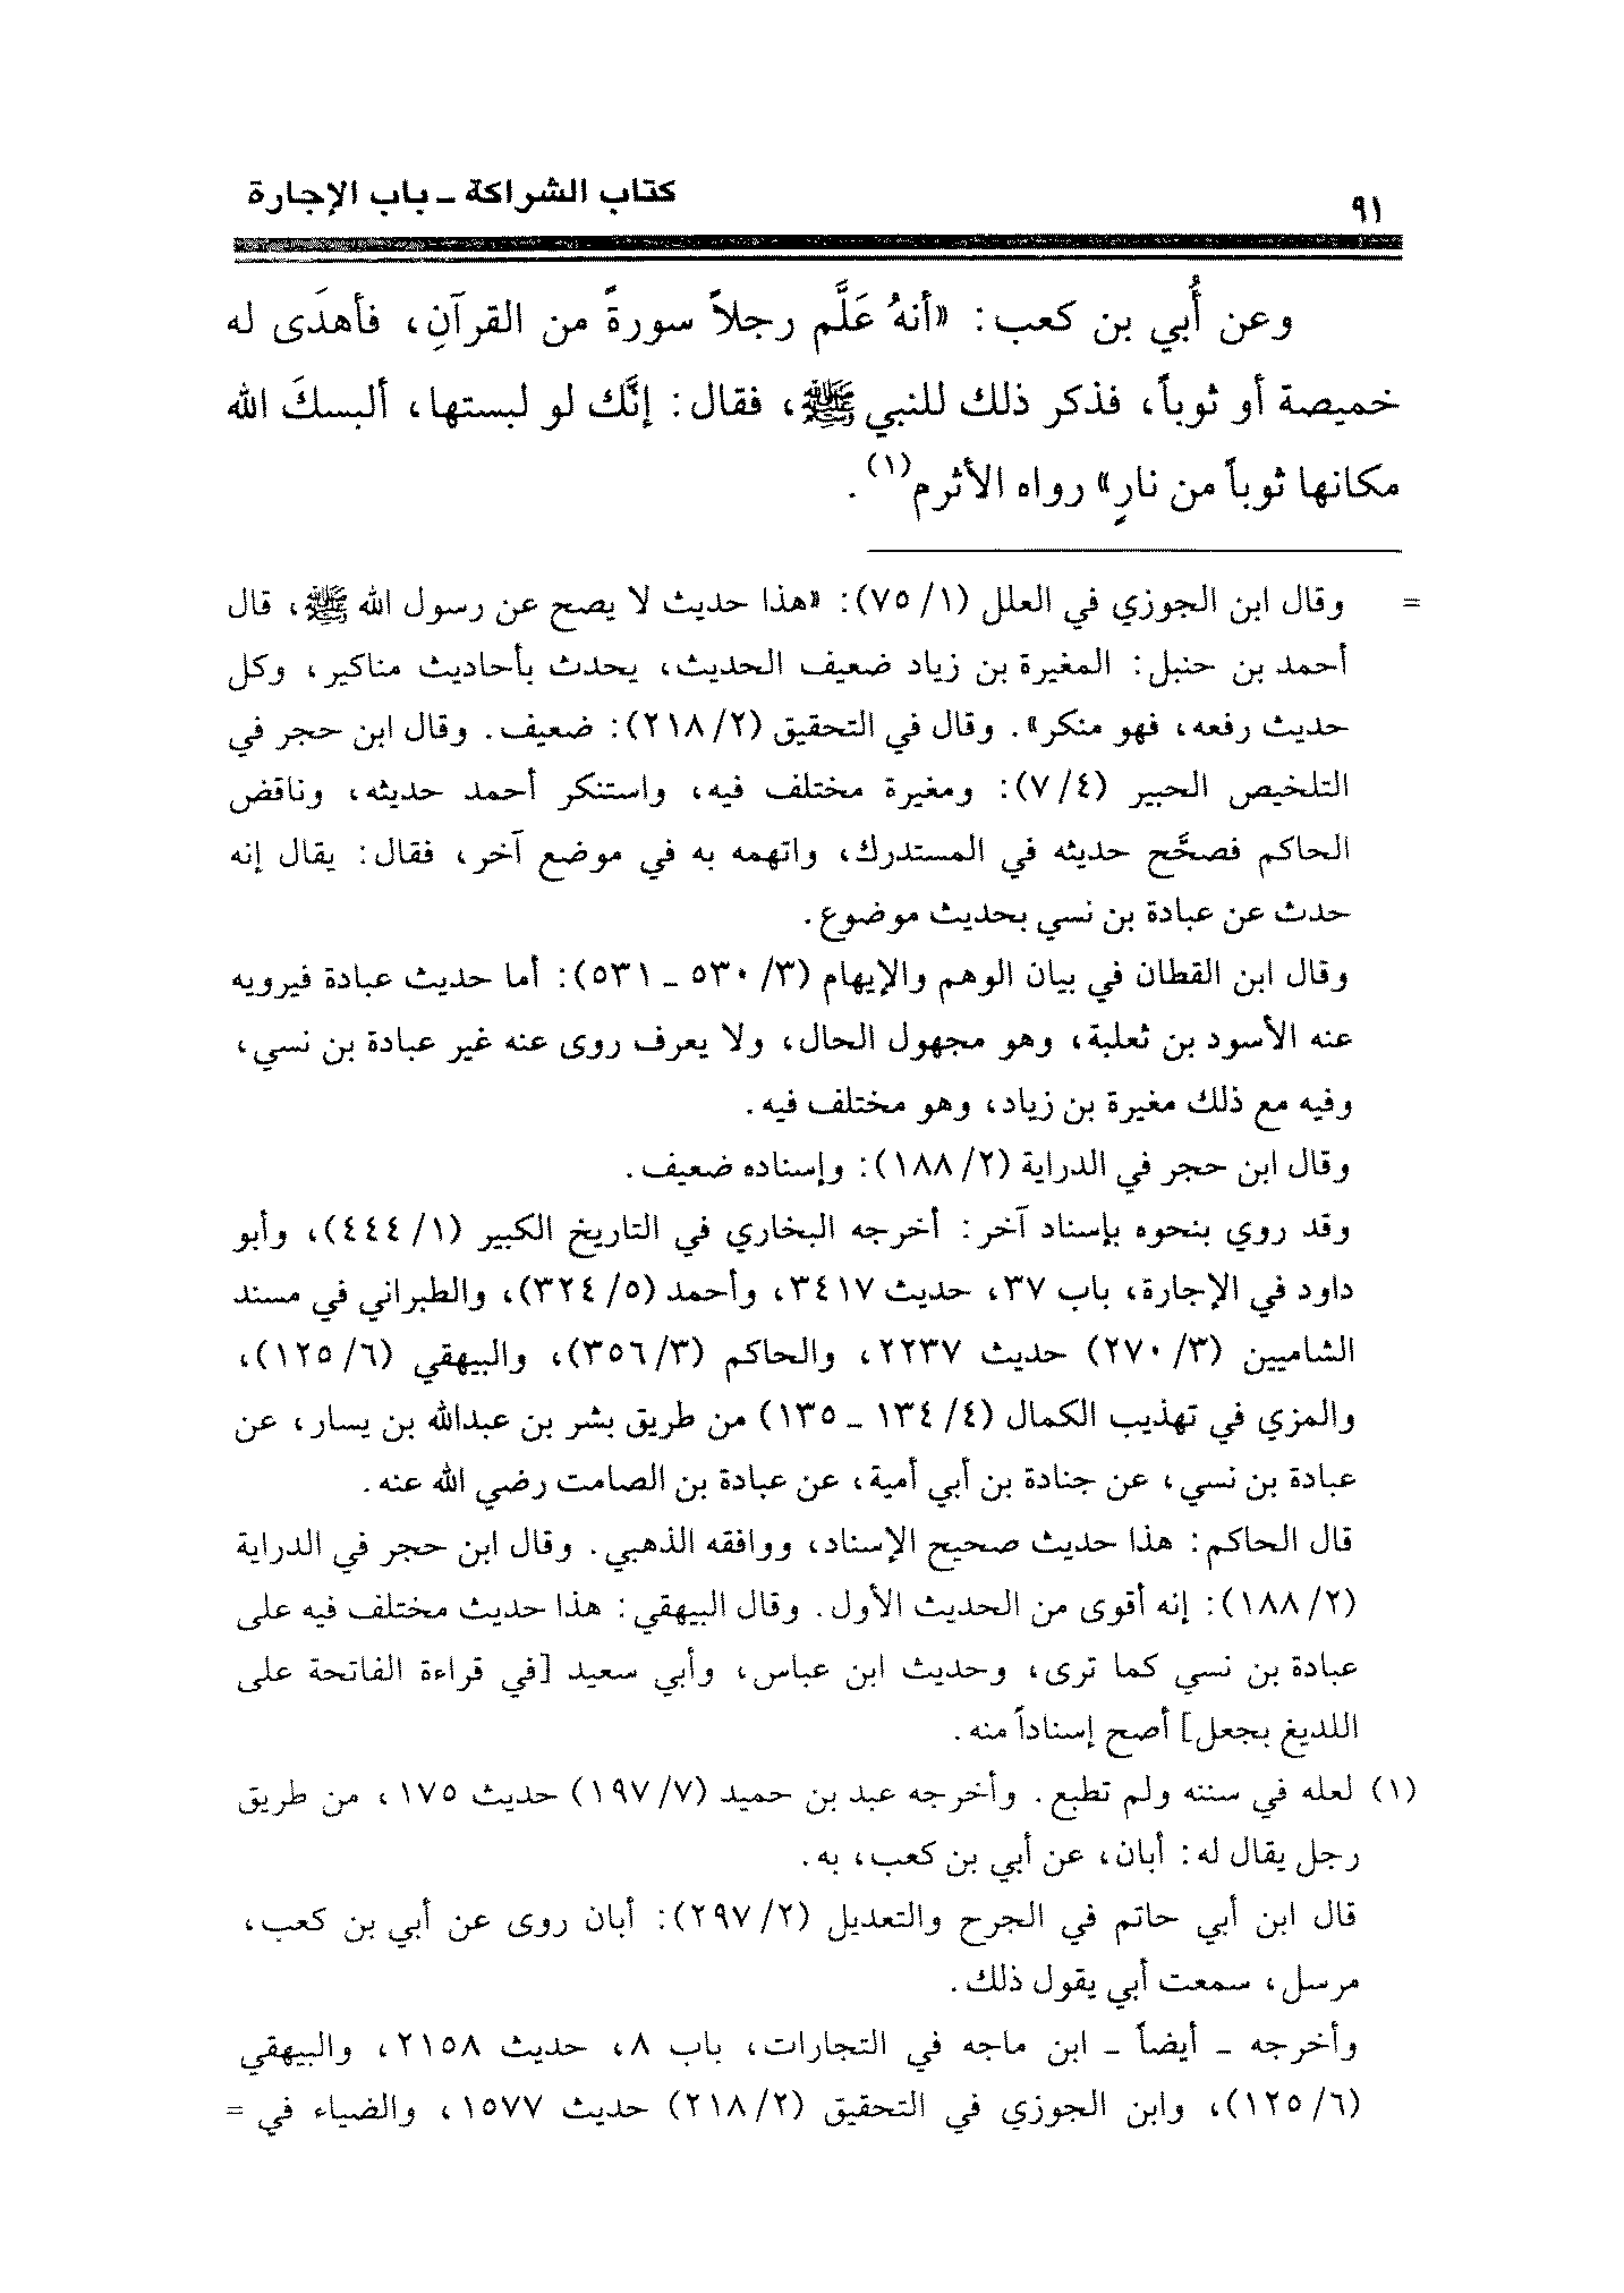 كتاب الشراكة ـ باب الإجارة
٩١
وعن أُبي بن كعب: «أنهُ عَلَّم رجلاً سورةً من القرآنِ، فأهدَى له
خميصة أو ثوباً، فذكر ذلك للنبي ﷺ، فقال: إنَّك لو لبستها، ألبسكَ الله
مكانها ثوباً من نارٍ» رواه الأثرم(١).
= وقال ابن الجوزي في العلل (١/ ٧٥): «هذا حديث لا يصح عن رسول الله ﷺ، قال
أحمد بن حنبل: المغيرة بن زياد ضعيف الحديث، يحدث بأحاديث مناكير، وكل
حديث رفعه، فهو منكر». وقال في التحقيق (٢/ ٢١٨): ضعيف. وقال ابن حجر في
التلخيص الحبير (٤/ ٧): ومغيرة مختلف فيه، واستنكر أحمد حديثه، وناقض
الحاكم فصحَّح حديثه في المستدرك، واتهمه به في موضع آخر، فقال: يقال إنه
حدث عن عبادة بن نسي بحديث موضوع.
وقال ابن القطان في بيان الوهم والإيهام (٣/ ٥٣٠ ـ ٥٣١): أما حديث عبادة فيرويه
عنه الأسود بن ثعلبة، وهو مجهول الحال، ولا يعرف روى عنه غير عبادة بن نسي،
وفيه مع ذلك مغيرة بن زياد، وهو مختلف فيه.
وقال ابن حجر في الدراية (٢/ ١٨٨): وإسناده ضعيف.
وقد روي بنحوه بإسناد آخر: أخرجه البخاري في التاريخ الكبير (١/ ٤٤٤)، وأبو
داود في الإجارة، باب ٣٧، حديث ٣٤١٧، وأحمد (٥/ ٣٢٤)، والطبراني في مسند
الشاميين (٣/ ٢٧٠) حديث ٢٢٣٧، والحاكم (٣/ ٣٥٦)، والبيهقي (٦/ ١٢٥)،
والمزي في تهذيب الكمال (٤/ ١٣٤ ـ ١٣٥) من طريق بشر بن عبدالله بن يسار، عن
عبادة بن نسي، عن جنادة بن أبي أمية، عن عبادة بن الصامت رضي الله عنه.
قال الحاكم: هذا حديث صحيح الإسناد، ووافقه الذهبي. وقال ابن حجر في الدراية
(٢/ ١٨٨): إنه أقوى من الحديث الأول. وقال البيهقي: هذا حديث مختلف فيه على
عبادة بن نسي كما ترى، وحديث ابن عباس، وأبي سعيد [في قراءة الفاتحة على
اللديغ بجعل] أصح إسناداً منه.
(١) لعله في سننه ولم تطبع. وأخرجه عبد بن حميد (٧/ ١٩٧) حديث ١٧٥، من طريق
رجل يقال له: أبان، عن أبي بن كعب، به.
قال ابن أبي حاتم في الجرح والتعديل (٢/ ٢٩٧): أبان روى عن أبي بن كعب،
مرسل، سمعت أبي يقول ذلك.
وأخرجه ـ أيضاً ـ ابن ماجه في التجارات، باب ٨، حديث ٢١٥٨، والبيهقي
(٦/ ١٢٥)، وابن الجوزي في التحقيق (٢/ ٢١٨) حديث ١٥٧٧، والضياء في =